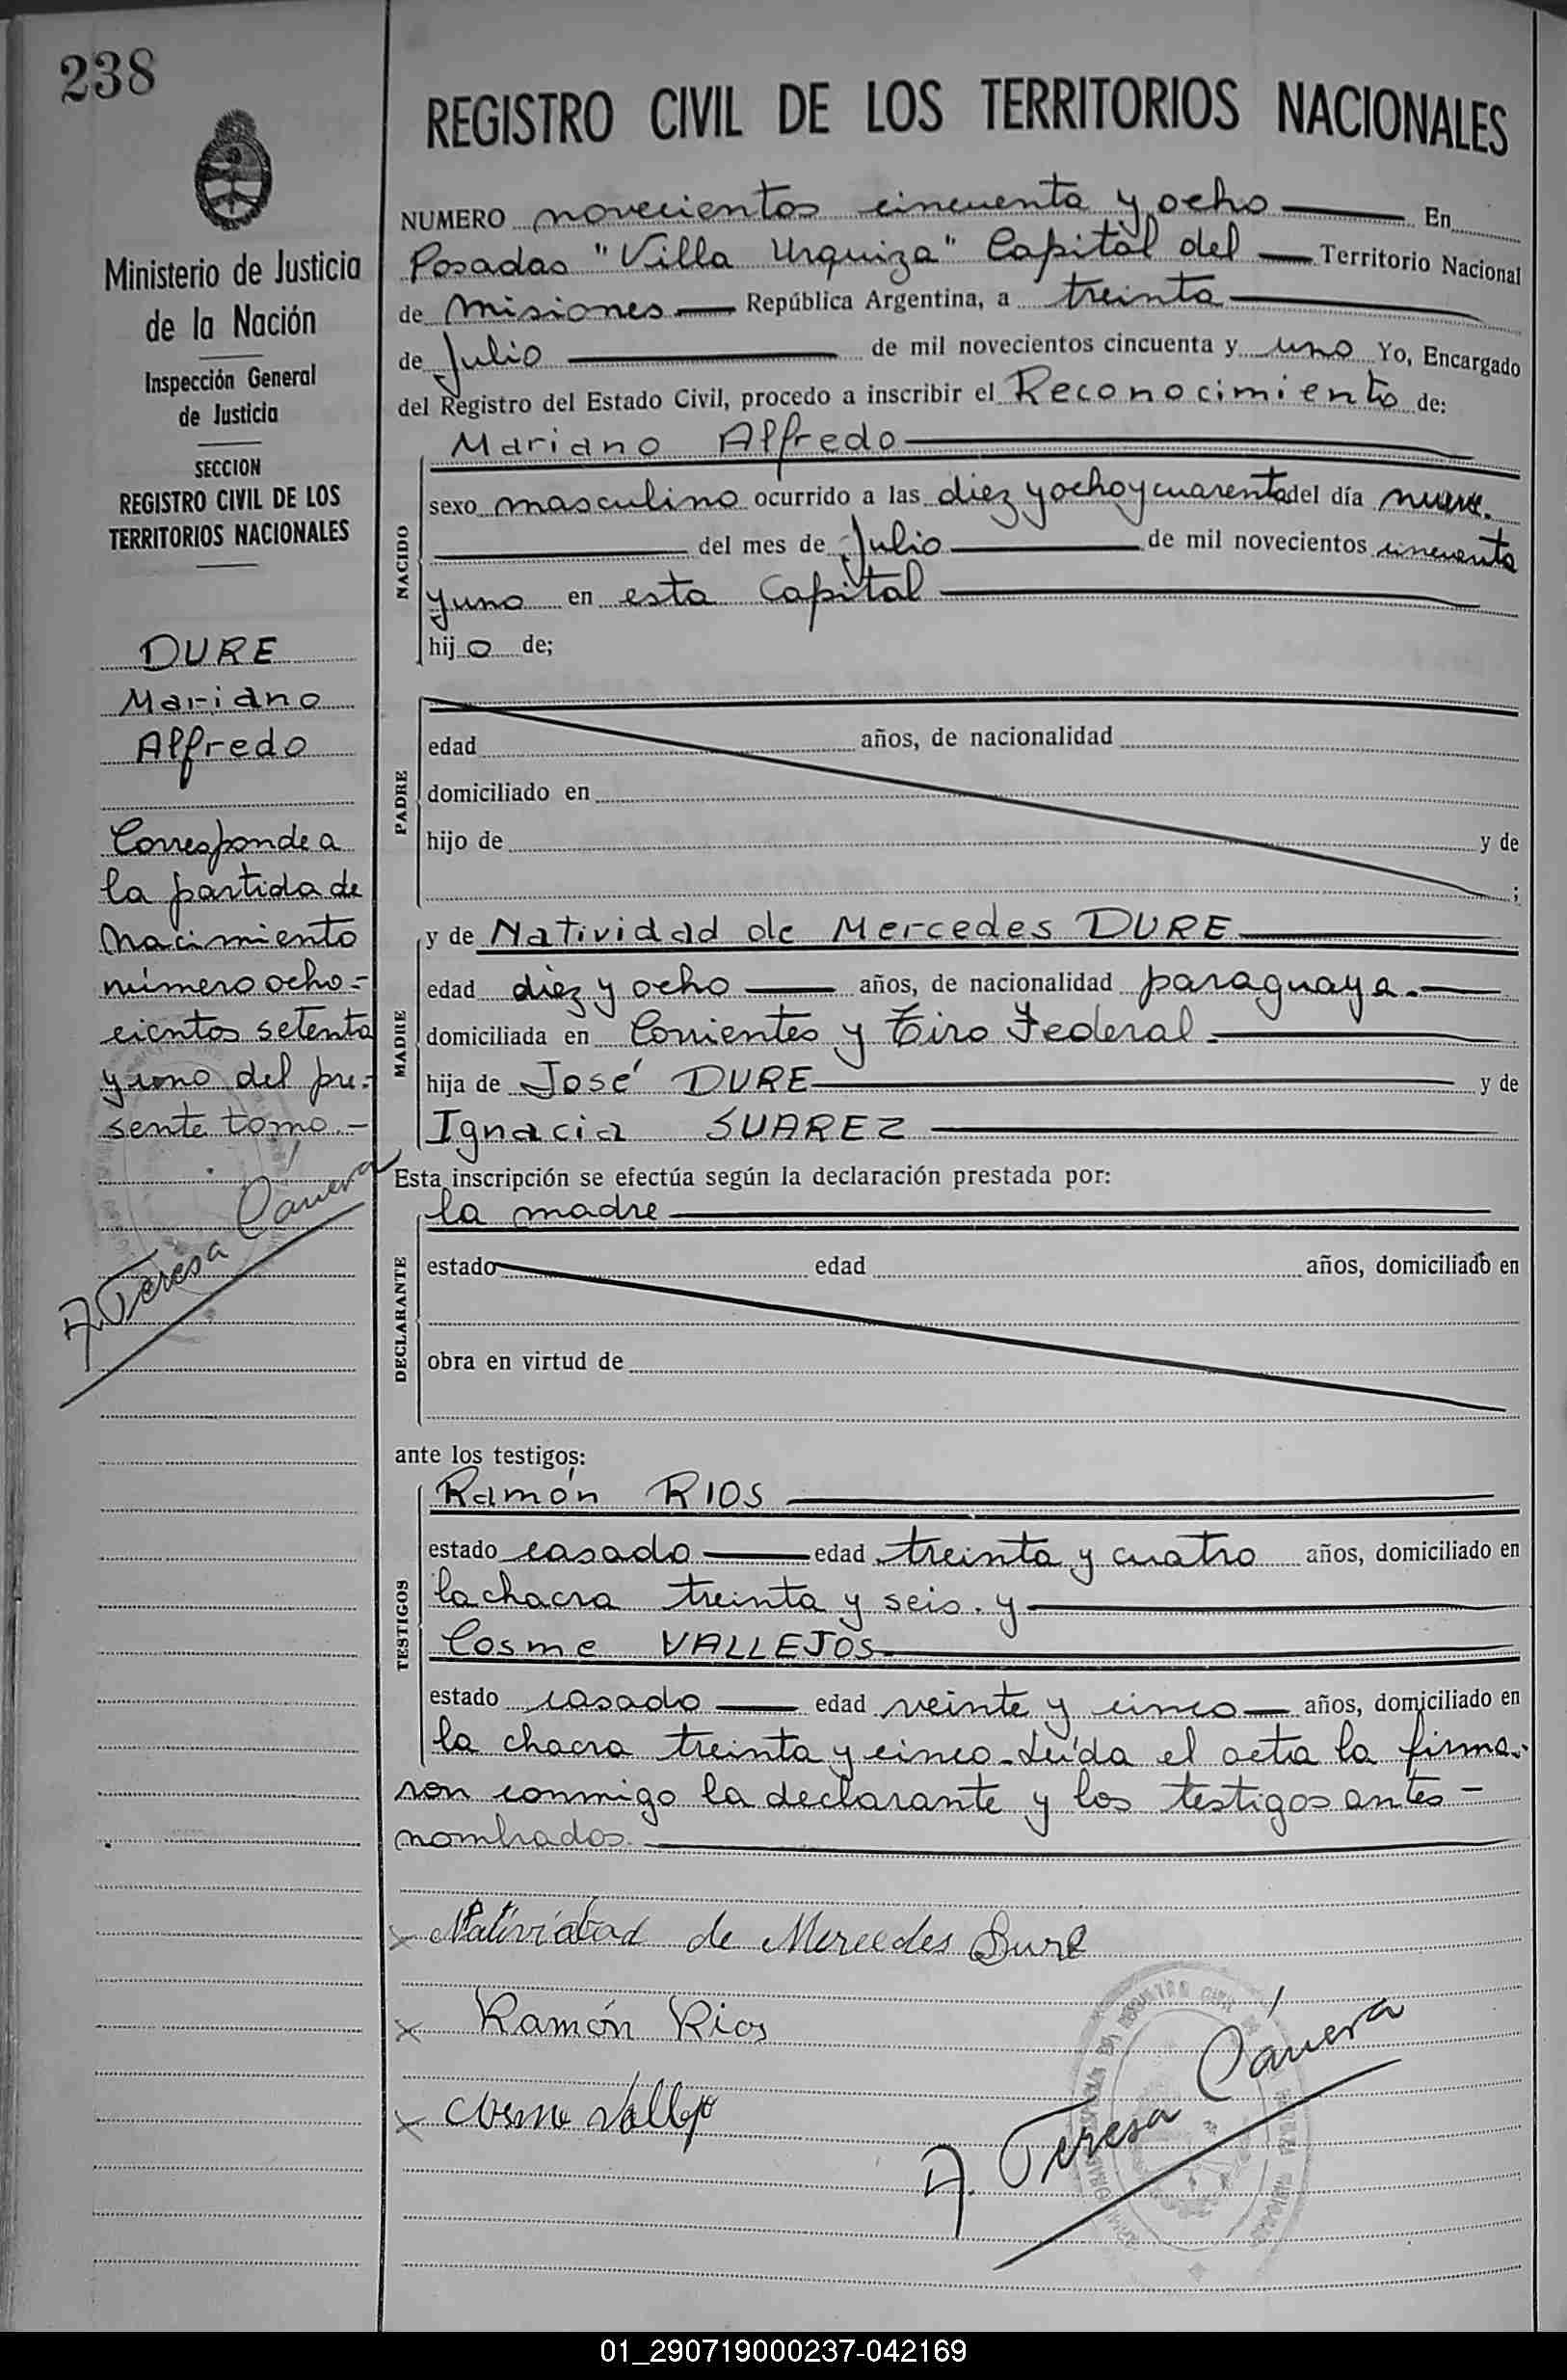 238
Ministerio de Justicia
de la Nación
Inspección General
de Justicia
SECCION
REGISTRO CIVIL DE LOS
TERRITORIOS NACIONALES
DURE
Mariano
Alfredo
Corresponde a
la partida de
Nacimiento
número ocho=
cientos setenta
y uno del pre=
sente tomo.-
A. Teresa
REGISTRO CIVIL DE LOS TERRITORIOS NACIONALES
NUMERO novecientos cincuenta y ocho En
Posadas "Villa Urquiza" Capital del Territorio Nacional
de Misiones República Argentina, a treinta
de Julio de mil novecientos cincuenta y uno Yo, Encargado
del Registro del Estado Civil, procedo a inscribir el Reconocimiento de:
Mariano Alfredo
NACIDO
sexo masculino ocurrido a las diez y ocho y cuarenta del día nueve.
del mes de Julio de mil novecientos cincuenta
y uno en esta Capital
hijo de;
PADRE
edad años, de nacionalidad
domiciliado en
hijo de y de
;
MADRE
y de Natividad de Mercedes DURE
edad diez y ocho años, de nacionalidad paraguaya.
domiciliada en Corrientes y Tiro Federal.
hija de José DURE y de
Ignacia SUAREZ
Esta inscripción se efectúa según la declaración prestada por:
la madre
DECLARANTE
estado edad años, domiciliado en
obra en virtud de
ante los testigos:
Ramón RIOS
TESTIGOS
estado casado edad treinta y cuatro años, domiciliado en
la chacra treinta y seis. y
Cosme VALLEJOS.
estado casado edad veinte y cinco años, domiciliado en
la chacra treinta y cinco-Leída el acta la firma-
ron conmigo la declarante y los testigos antes-
nombrados.
x Natividad de Mercedes Dure
x Ramón Rios
x Cosme Vallejo
A. Teresa
01_290719000237-042169